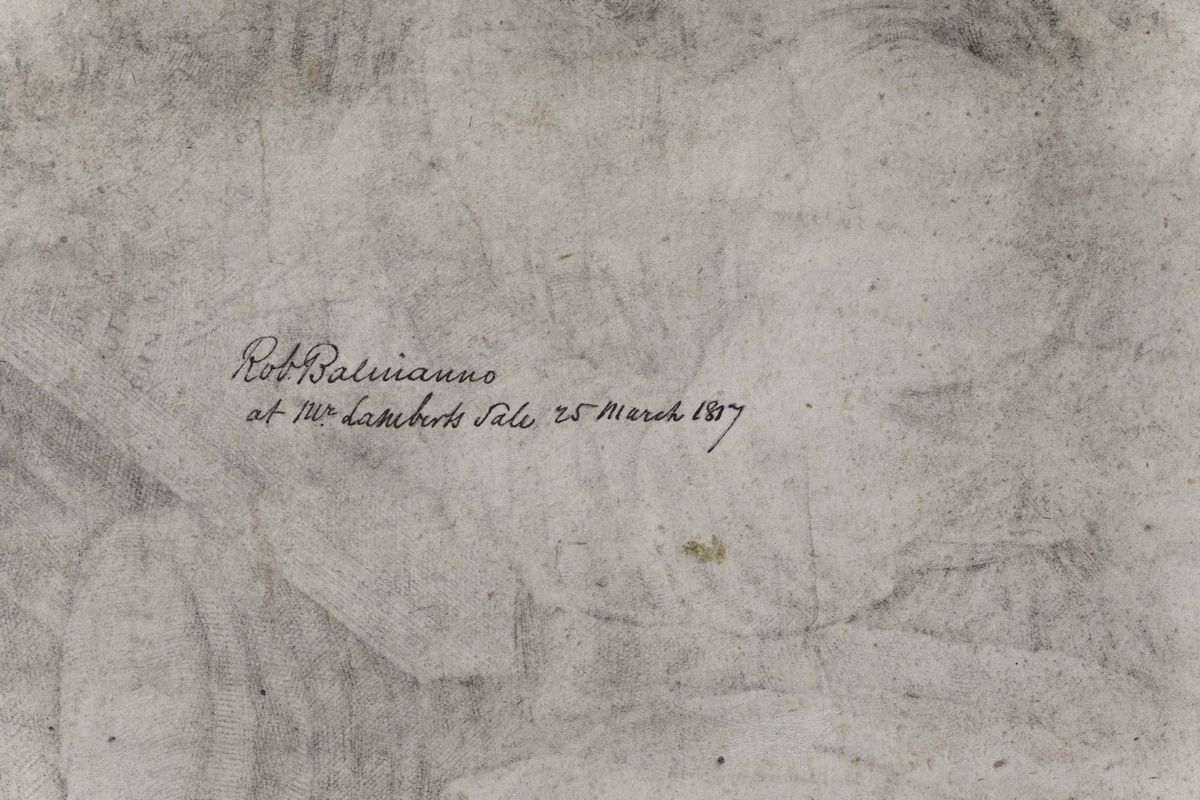 Rob. Balmanno
at Mr. Lamberts Sale 25 March 1817